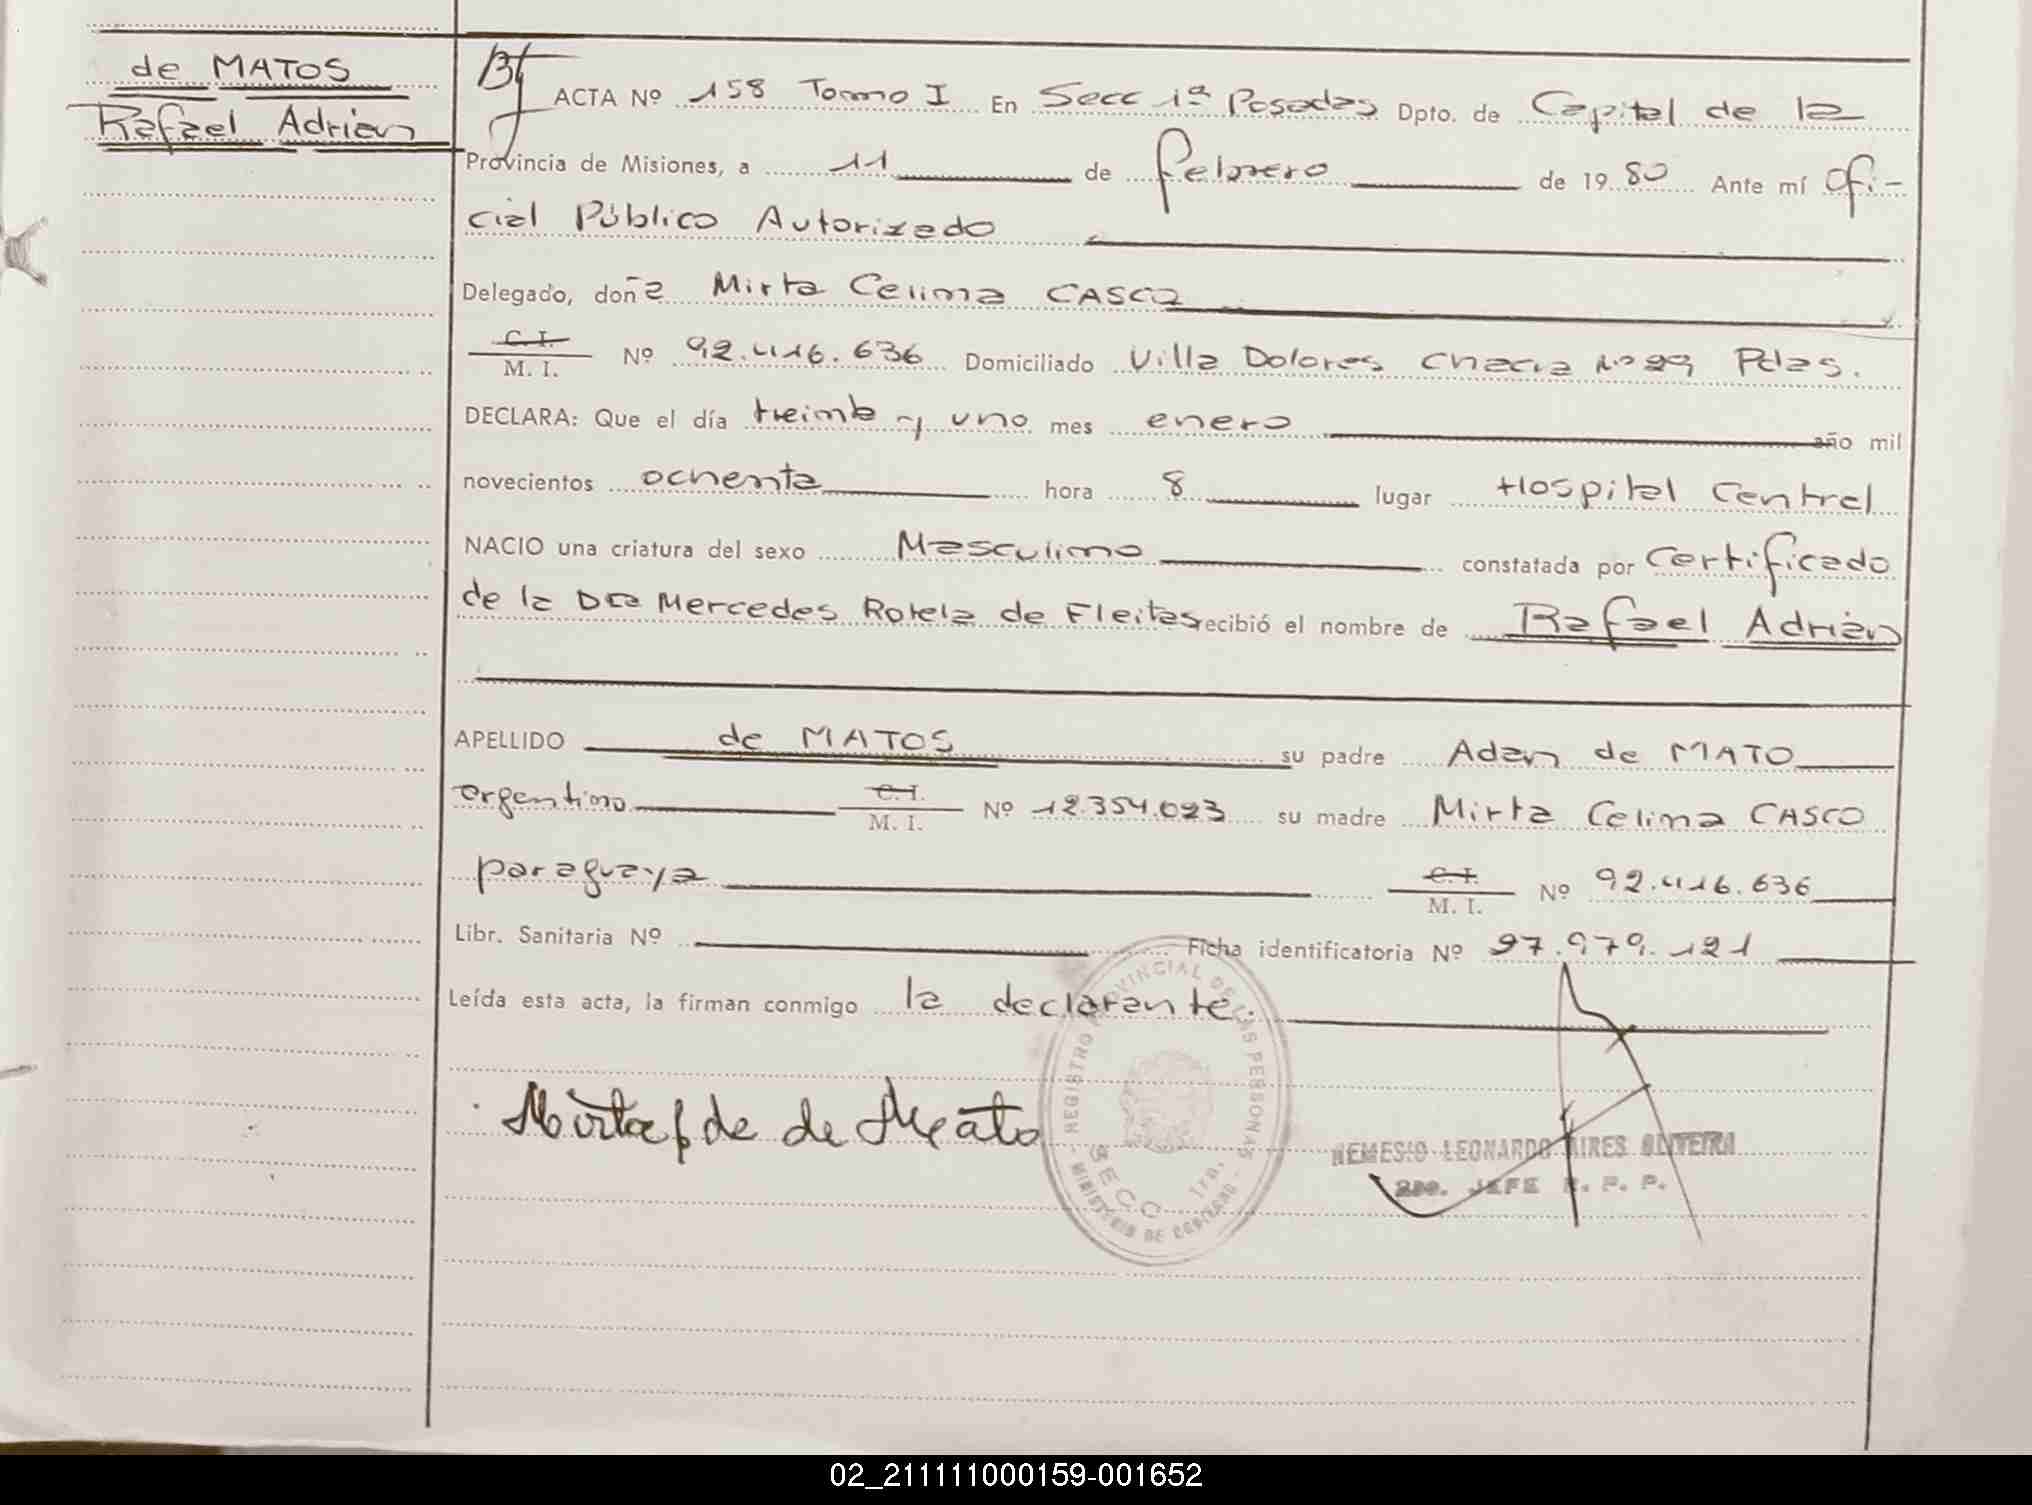 de MATOS
Rafael Adrian
ACTA Nº 158 Tomo I En Secc 1ª Posadas Dpto. de Capital de la
Provincia de Misiones, a 11 de febrero de 1980 Ante mí Ofi-
cial Público Autorizado
Delegado, doña Mirta Celima CASCO
C. I.
M. I. Nº 92.416.636 Domiciliado Villa Dolores Chacra Nº 29 Pdas.
DECLARA: Que el día treinta y uno mes enero año mil
novecientos ochenta hora 8 lugar Hospital Central
NACIO una criatura del sexo Masculino constatada por Certificado
de la Dra Mercedes Rotela de Fleitas recibió el nombre de Rafael Adrian
APELLIDO de MATOS su padre Adan de MATO
argentino C. I.
M. I. Nº 12.354.023 su madre Mirta Celima CASCO
paraguaya C. I.
M. I. Nº 92.416.636
Libr. Sanitaria Nº Ficha identificatoria Nº 27.979.121
Leída esta acta, la firman conmigo la declarante.
Mirta de de Mato
REGISTRO PROVINCIAL DE LAS PERSONAS
SECC 1ra.
MINISTERIO DE GOBIERNO
NEMESIO LEONARDO AIRES OLIVEIRA
2do. JEFE R. P. P.
02_211111000159-001652